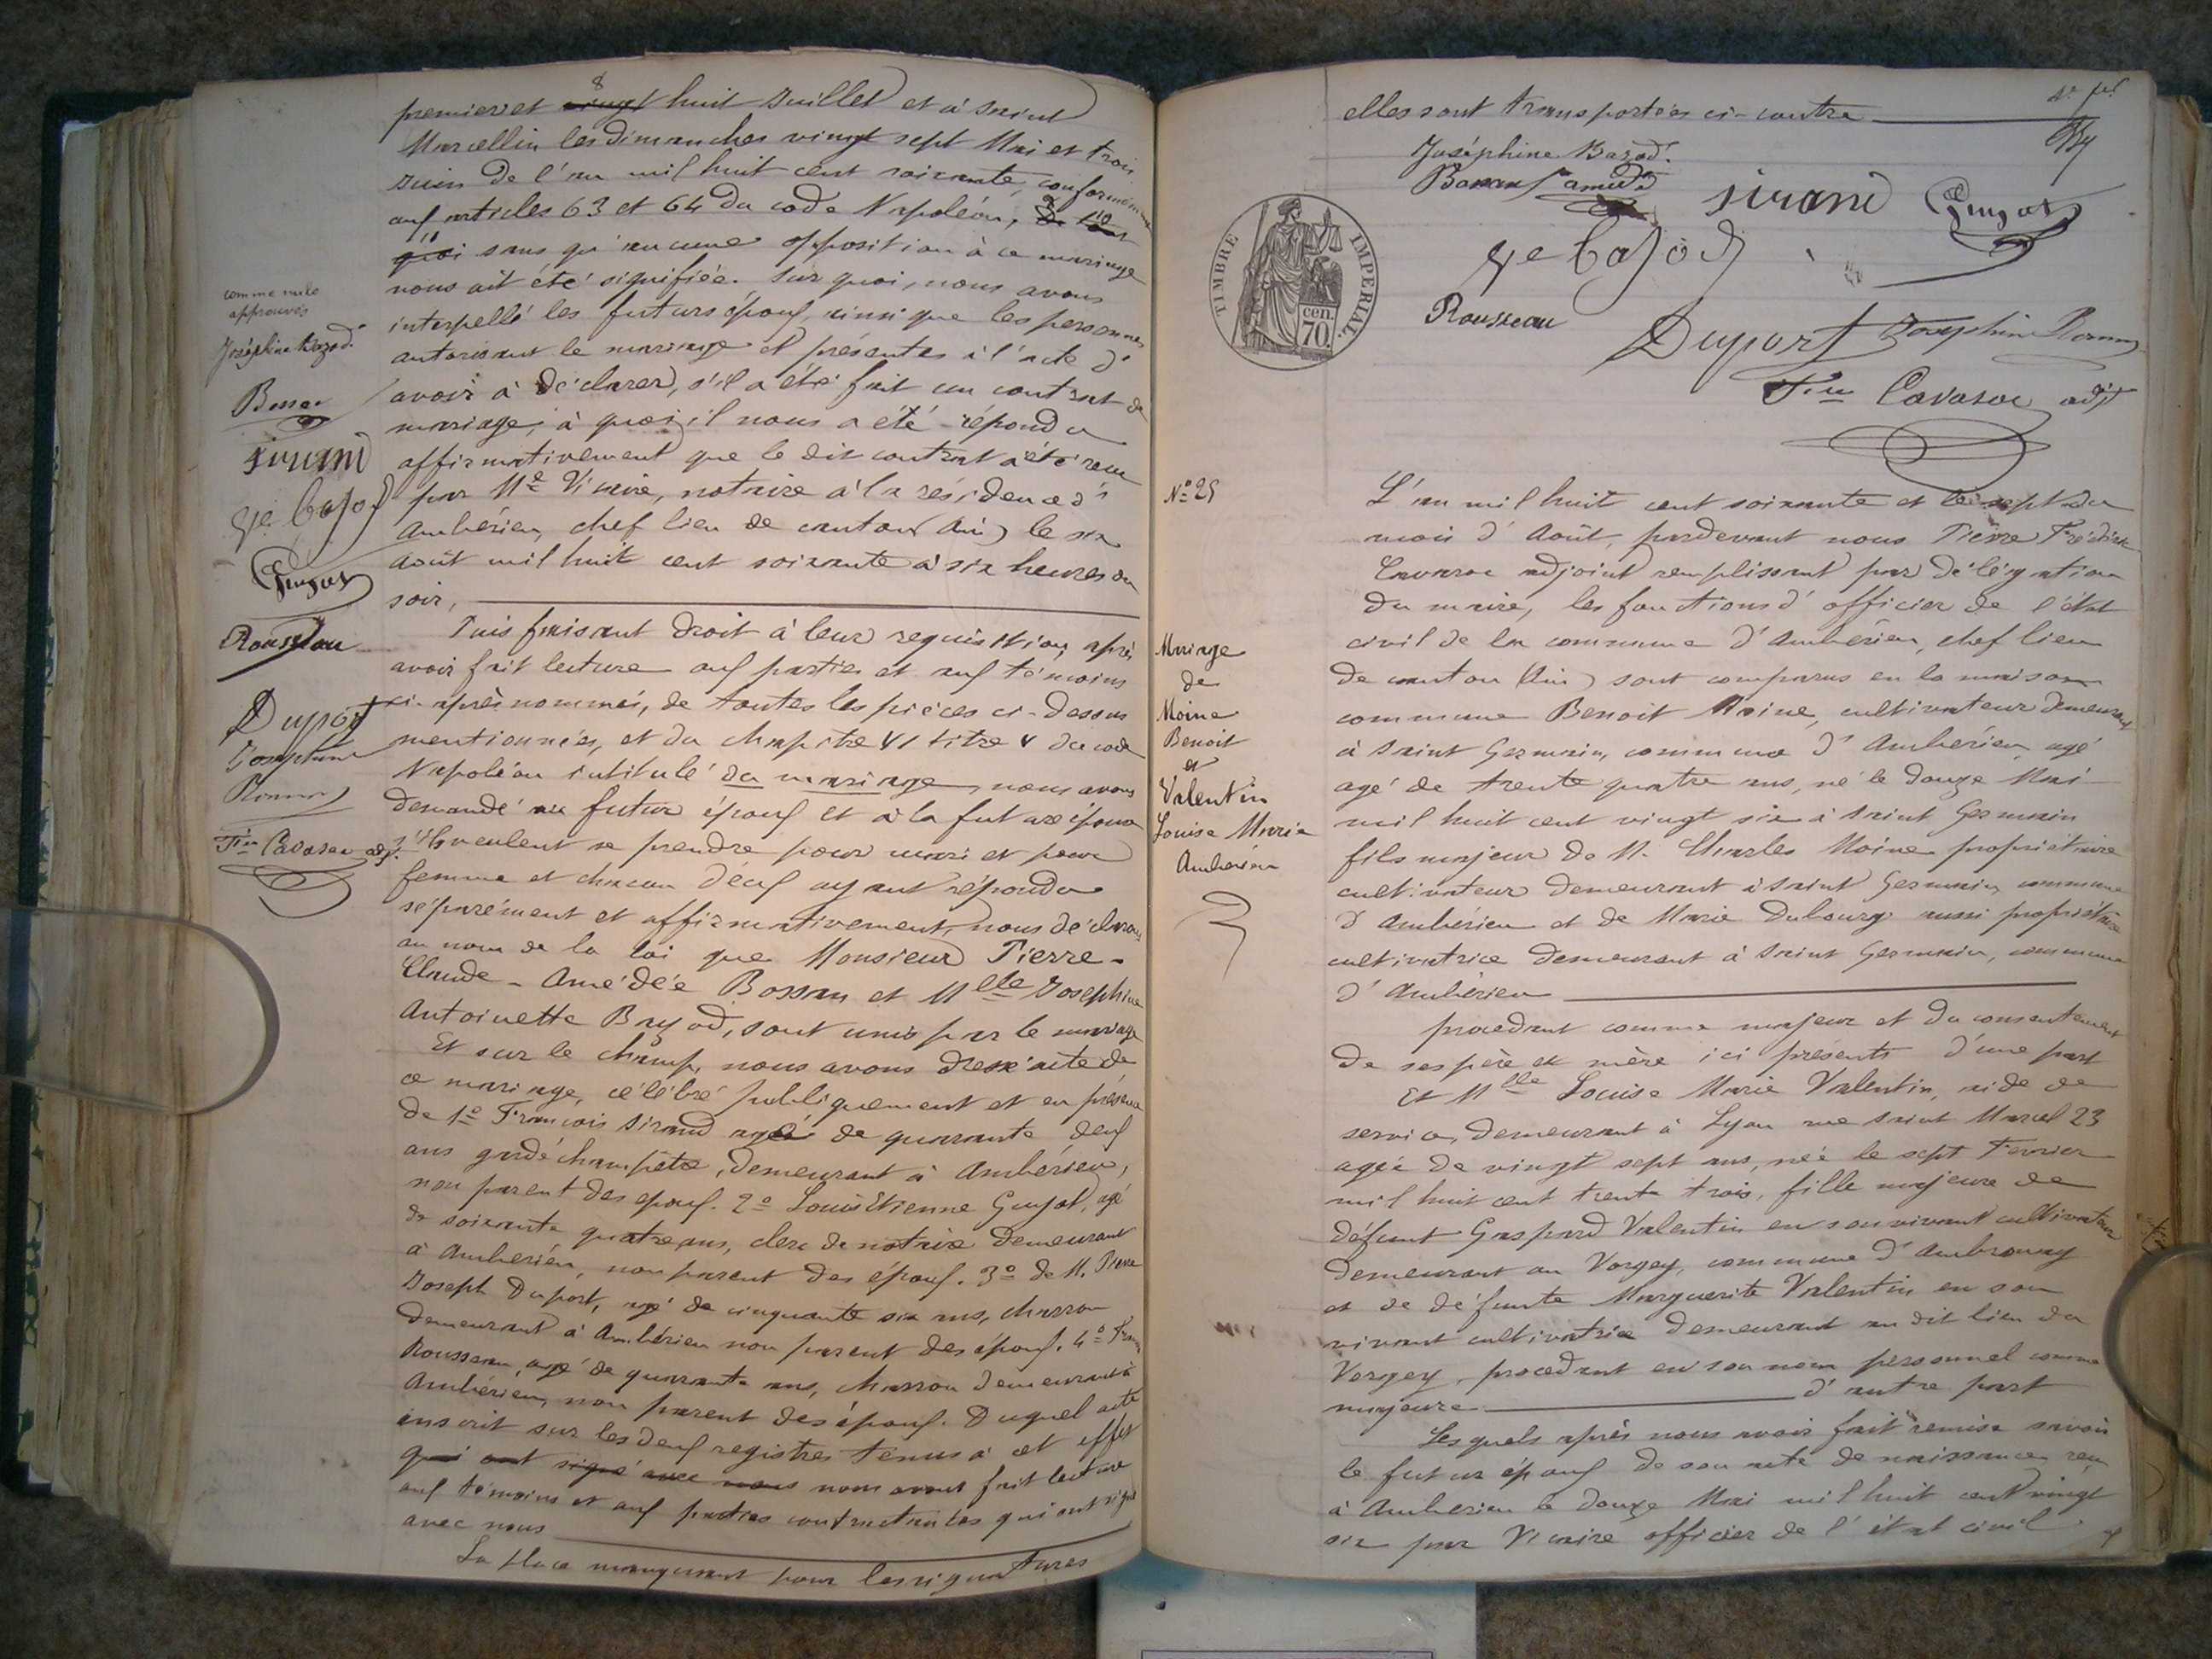 premier et 8 vingt huit Juillet et à Saint
Marcellin les dimanches vingt sept Mai et trois
Juin de l'an mil huit cent soixante, conformément
aux articles 63 et 64 du code Napoléon, De tout
quoi sans qu'aucune opposition à ce mariage
nous ait été signifiée. Sur quoi, nous avons
interpellé les futurs époux, ainsi que les personnes
autorisant le mariage et présentes à l'acte d'
avoir à déclarer, s'il a été fait un contrat de
mariage, à quoi il nous a été répondu
affirmativement que le dit contrat a été reçu
par Me Vicaire, notaire à la résidence d'
Ambérieu, chef lieu de canton (Ain) le six
Août mil huit cent soixante à six heures du
soir,
Puis faisant droit à leur requisition, après
avoir fait lecture aux parties et aux témoins
ci-après nommés, de toutes les pièces ci-dessus
mentionnées, et du chapitre VI titre V du code
Napoléon intitulé du mariage, nous avons
demandé au futur époux et à la future épouse
s'ils veulent se prendre pour mari et pour
femme et chacun d'eux ayant répondu
séparément et affirmativement, nous déclarons
au nom de la loi que Monsieur Pierre-
Claude-Amédée Bossan et Mlle Joséphine
Antoinette Bazod, sont unis par le mariage
Et sur le champ, nous avons dressé acte de
ce mariage, célébré publiquement et en présence
de 1o François Sirand agé de quarante deux
ans garde champêtre, demeurant à Ambérieu,
non parent des epoux. 2o Louis Etienne Guyot, agé
de soixante quatre ans, clerc de notaire demeurant
à Ambérieu, non parent des époux. 3o de M. Pierre
Joseph Duport, agé de cinquante six ans, charron
demeurant à Ambérieu non parent des époux. 4o
Rousseau, agé de quarante ans, charron demeurant à
Ambérieu, non parent des époux. Duquel acte
inscrit sur les deux registres tenus à cet effet
qui ont signé avec nous nous avons fait lecture
aux témoins et aux parties contractantes qui ont signé
avec nous
La place manquant pour les signatures
comme nuls
approuvés
Joséphine Bazod
Bossan
Sirand
Guyot
Rousseau
Duport
Joséphine
Cavaroc adjt
elles sont transportées ci-contre
Joséphine Bazod
Bossan amédé
Sirand Guyot
TIMBRE IMPERIAL.
cen. 70.
Rousseau
Duport Joséphine
Cavaroc adjt
No 25
Mariage
de
Moine
Benoit
et
Valentin
Louise Marie
Ambérieu
L'an mil huit cent soixante et le sept du
mois d'Août, pardevant nous Pierre Frédéric
Cavaroc adjoint remplissant par délégation
du maire, les fonctions d'officier de l'état
civil de la commune d'Ambérieu, chef lieu
de canton (Ain) sont comparus en la maison
commune Benoit Moine, cultivateur demeurant
à Saint Germain, commune d'Ambérieu agé
agé de trente quatre ans, né le douze Mai
mil huit cent vingt six à Saint Germain
fils majeur de M. Charles Moine propriétaire
cultivateur demeurant à Saint Germain commune
d'Ambérieu et de Marie Dubourg aussi propriétaire
cultivatrice demeurant à Saint Germain, commune
d'Ambérieu
procedant comme majeur et du consentement
de ses père et mère ici présents d'une part
Et Mlle Louise Marie Valentin, aide de
service, demeurant à Lyon rue Saint Marcel 23
agée de vingt sept ans, née le sept Fevrier
mil huit cent trente trois, fille majeure de
défunt Gaspard Valentin en son vivant cultivateur
demeurant au Vorgey, commune d'Ambronay
et de défunte Marguerite Valentin en son
vivant cultivatrice demeurant au dit lieu du
Vorgey, procedant en son nom personnel comme
majeure d'autre part
Lesquels après nous avoir fait remise savoir
le futur époux de son acte de naissance reçu
à Ambérieu le douze Mai mil huit cent vingt
six par Vicaire officier de l'état civil